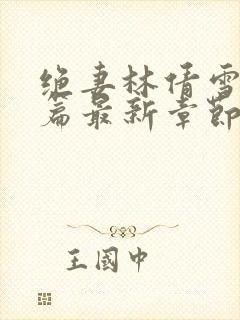 绝妻林倩雪
篇最新章节
王国中